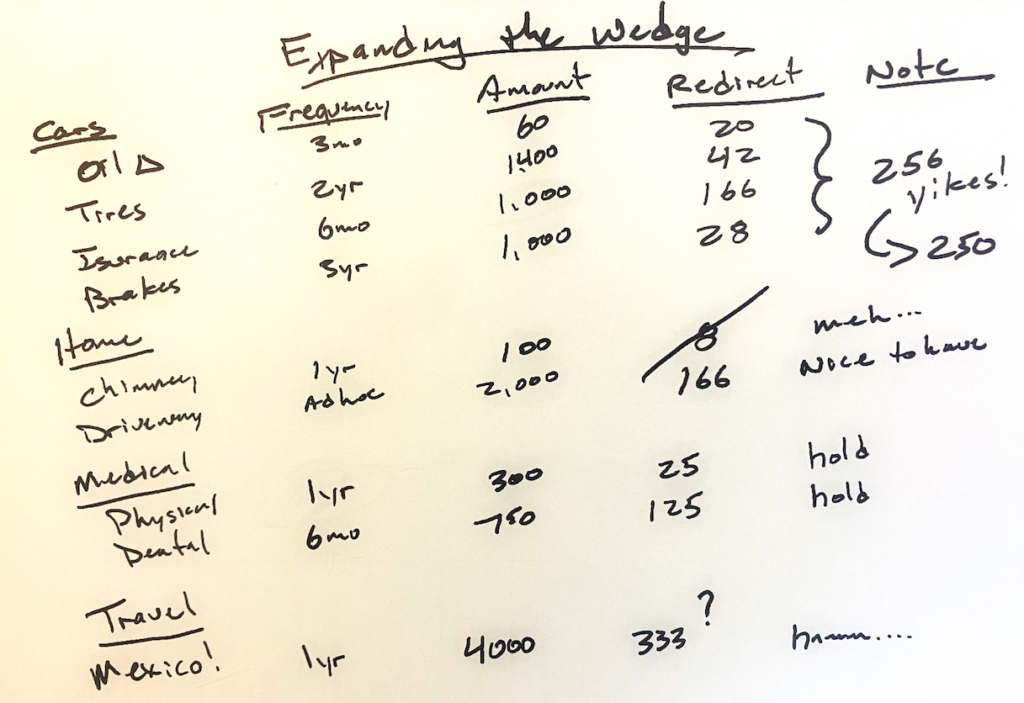 Expanding the Wedge
Frequency Amount Redirect Note
Cars
Oil Δ 3mo 60 20
Tires 2yr 1,400 42
Isurance 6mo 1,000 166
Brakes 3yr 1,000 28
256
yikes!
250
Home
Chimney 1yr 100 8 meh...
Driveway Adhoc 2,000 166 Nice to have
Medical
Physical 1yr 300 25 hold
Dental 6mo 750 125 hold
Travel
Mexico! 1yr 4000 333? hmmm....